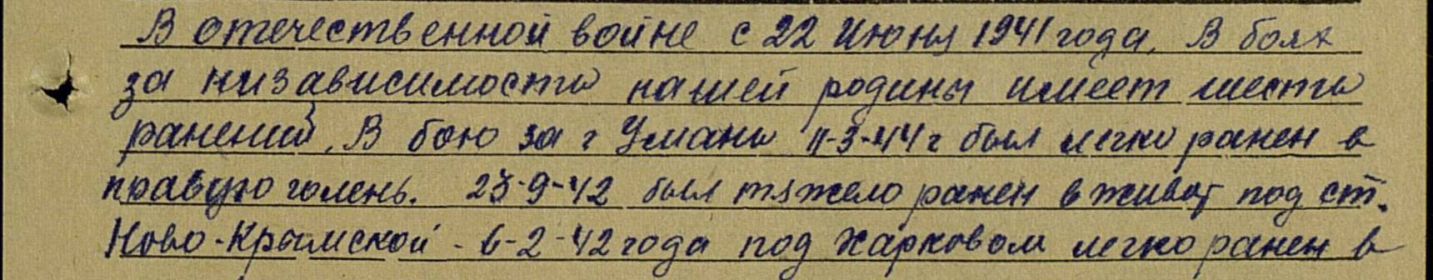 В отечественной войне с 22 июня 1941 года. В боях
за низависимость нашей родины имеет шесть
ранений. В бою за г Умань 11-3-44 г был легко ранен в
правую голень. 23-9-42 был тяжело ранен в живот под ст.
Ново-Крымской - 6-2-42 года под Харьковом легко ранен в